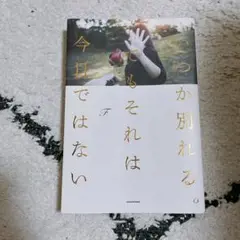 いつか別れる。
でもそれは
今日ではない
F